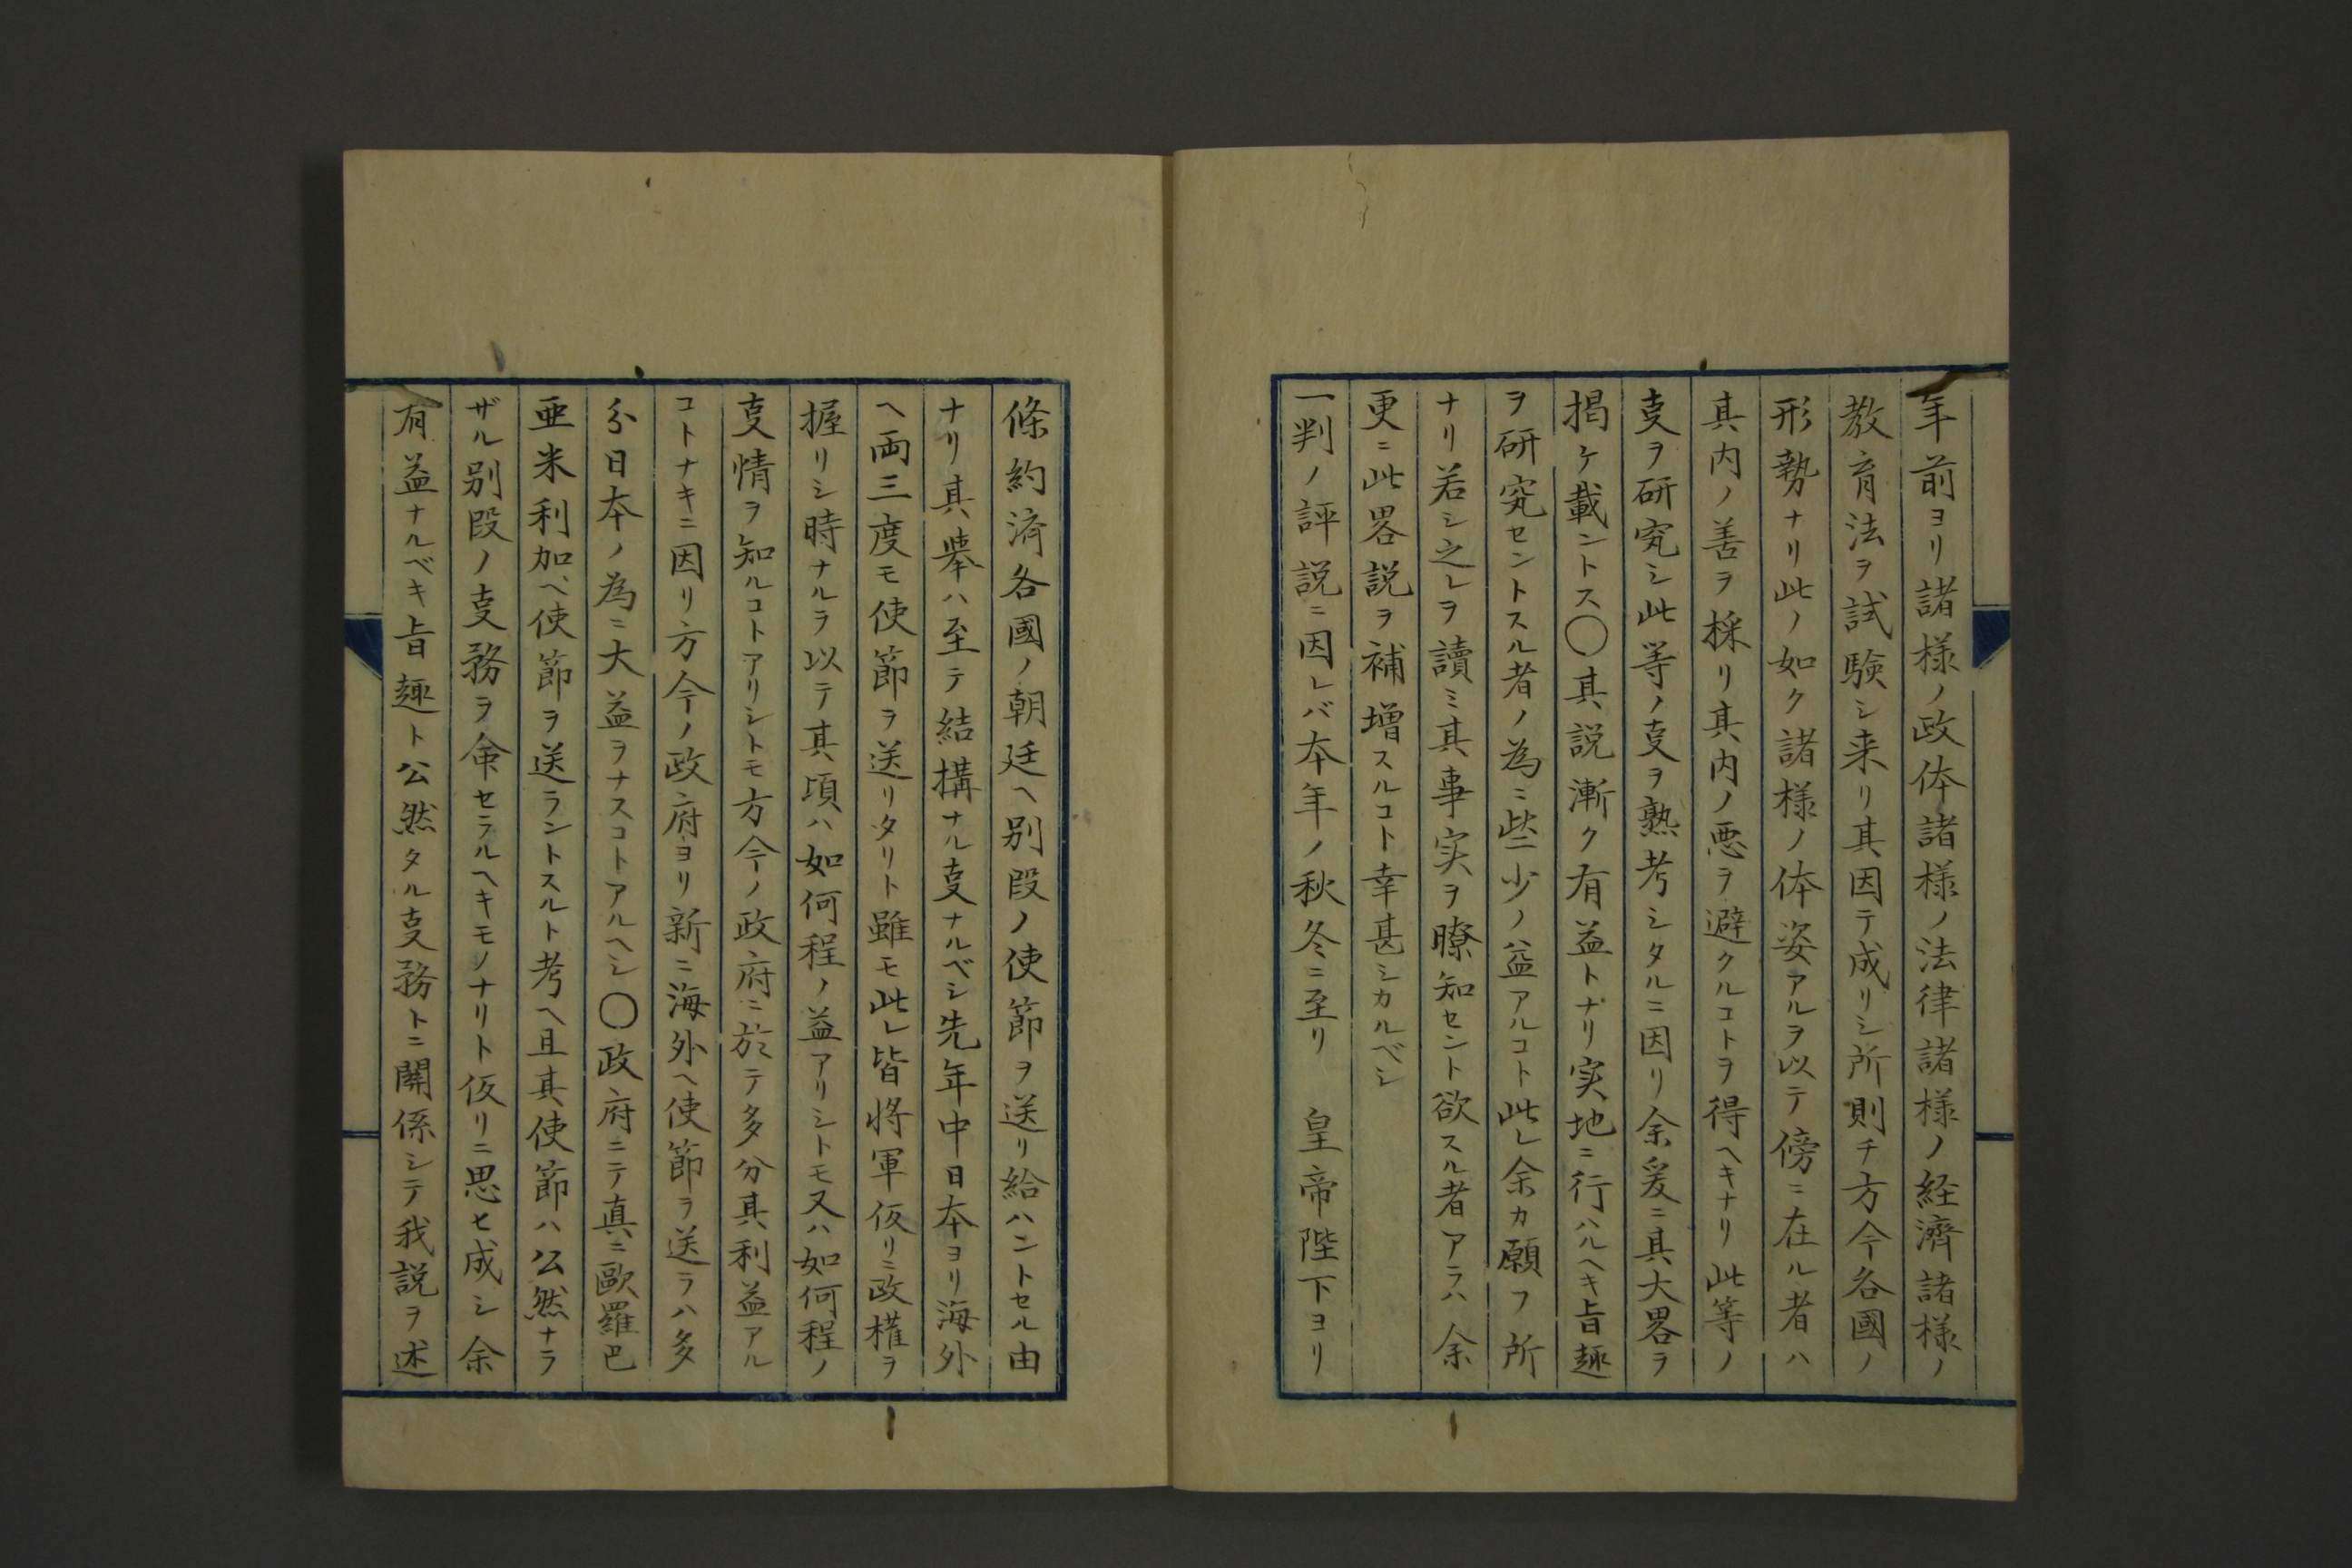 年前ヨリ諸様ノ政体諸様ノ法律諸様ノ経濟諸様ノ
教育法ヲ試驗シ来リ其因テ成リシ所則チ方今各國ノ
形勢ナリ此ノ如ク諸様ノ体姿アルヲ以テ傍ニ在ル者ハ
其内ノ善ヲ採リ其内ノ悪ヲ避クルコトヲ得ヘキナリ此等ノ
叓ヲ研究シ此等ノ叓ヲ熟考シタルニ因リ余爰ニ其大畧ヲ
掲ケ載ントス〇其説漸ク有益トナリ実地ニ行ハルヘキ旨趣
ヲ研究セントスル者ノ為ニ些少ノ益アルコト此レ余カ願フ所
ナリ若シ之レヲ讀ミ其事実ヲ瞭知セント欲スル者アラハ余
更ニ此畧説ヲ補増スルコト幸甚シカルベシ
一判ノ評説ニ因レバ本年ノ秋冬ニ至リ　皇帝陛下ヨリ
條約済各國ノ朝廷ヘ別段ノ使節ヲ送リ給ハントセル由
ナリ其擧ハ至テ結構ナル叓ナルベシ先年中日本ヨリ海外
ヘ両三度モ使節ヲ送リタリト雖モ此レ皆将軍仮リニ政権ヲ
握リシ時ナルヲ以テ其頃ハ如何程ノ益アリシトモ又ハ如何程ノ
叓情ヲ知ルコトアリシトモ方今ノ政府ニ於テ多分其利益アル
コトナキニ因リ方今ノ政府ヨリ新ニ海外ヘ使節ヲ送ラハ多
分日本ノ為ニ大益ヲナスコトアルヘシ〇政府ニテ真ニ歐羅巴
亜米利加ヘ使節ヲ送ラントスルト考ヘ且其使節ハ公然ナラ
ザル別段ノ叓務ヲ命セラルヘキモノナリト仮リニ思ヒ成シ余
有益ナルベキ旨趣ト公然タル叓務トニ関係シテ我説ヲ述